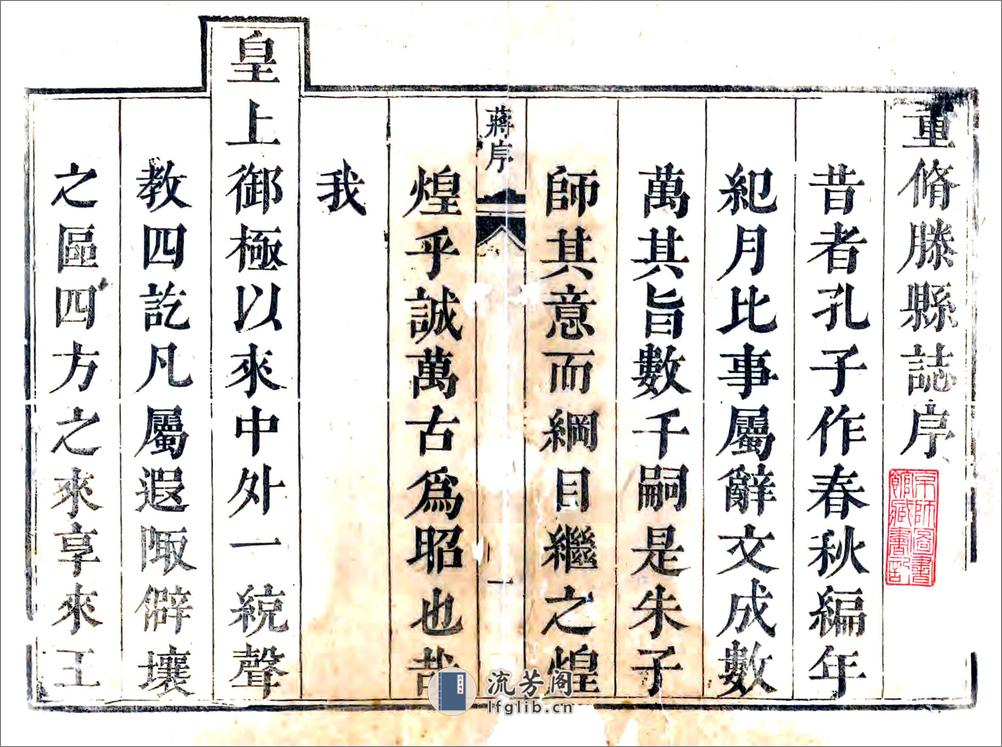 重脩滕縣誌序
昔者孔子作春秋編年
紀月比事屬辭文成數
萬其旨數千嗣是朱子
師其意而綱目繼之煌
蔣序
一
煌乎誠萬古爲昭也哉
我
皇上御極以來中外一統聲
教四訖凡屬遐陬僻壤
之區四方之來享來王
流芳阁
lfglib.cn